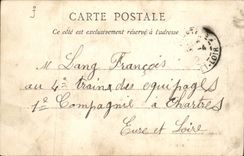 3
CARTE POSTALE
Ce côté est exclusivement réservé à l'adresse
M Lang François
au 4e train des equipages
1e Compagnie à Chartres
Eure et Loire